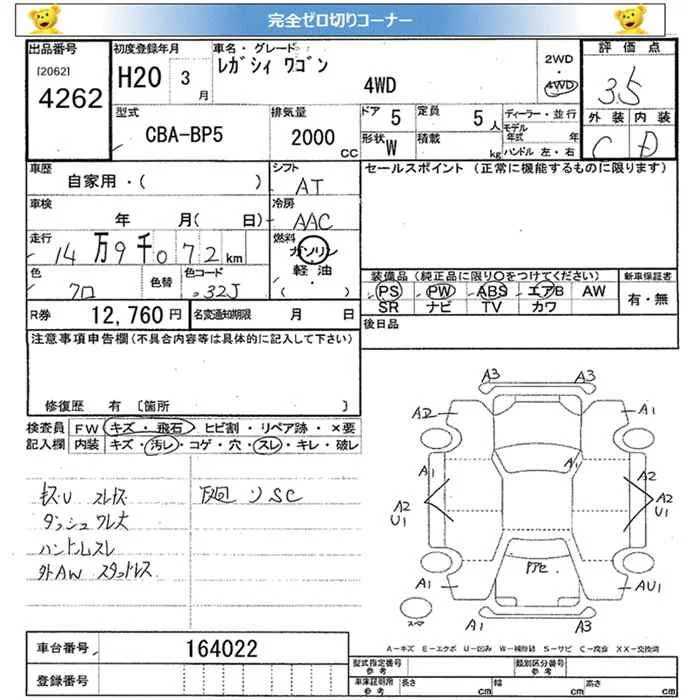 完全ゼロ切りコーナー
出品番号 初度登録年月 車名・グレード 評価点
[2062] 4262
H20 3月
レガシィ ワゴン 4WD
2WD 4WD
3.5
型式 排気量 ドア 5 定員 5人 ディーラー・並行 外装 内装
CBA-BP5 2000 CC 形状 W 積載 kg モデル年式 年 C D
ハンドル 左・右
車歴 シフト セールスポイント (正常に機能するものに限ります)
自家用・( ) AT
車検 冷房
年 月( 日) AAC
走行 燃料
14万9千072km ガソリン
軽油
色 色替 色コード ( ・ ) 装備品 (純正品に限り〇をつけてください) 新車保証書
クロ 32J PS PW ABS エアB AW 有・無
SR ナビ TV カワ
R券 12,760円 名変通知期限 月 日 後日品
注意事項申告欄(不具合内容等は具体的に記入して下さい)
修復歴 有 〔箇所 〕
検査員 FW キズ・飛石・ヒビ割・リペア跡・×要
記入欄 内装 キズ・汚レ・コゲ・穴・スレ・キレ・破レ
ダッシュワレ大
ハンドルスレ
外AW スタッドレス
A3 A3
A1
A1 A1 A2
A2 U1 A2 U1
A1 AU1
A1 A3
A-キズ E-エクボ U-凹み W-補修跡 S-サビ C-腐食 XX-交換済
車台番号 164022 型式指定番号 参考 類別区分番号 参考
登録番号 車庫証明用 参考 長さ cm 幅 cm 高さ cm